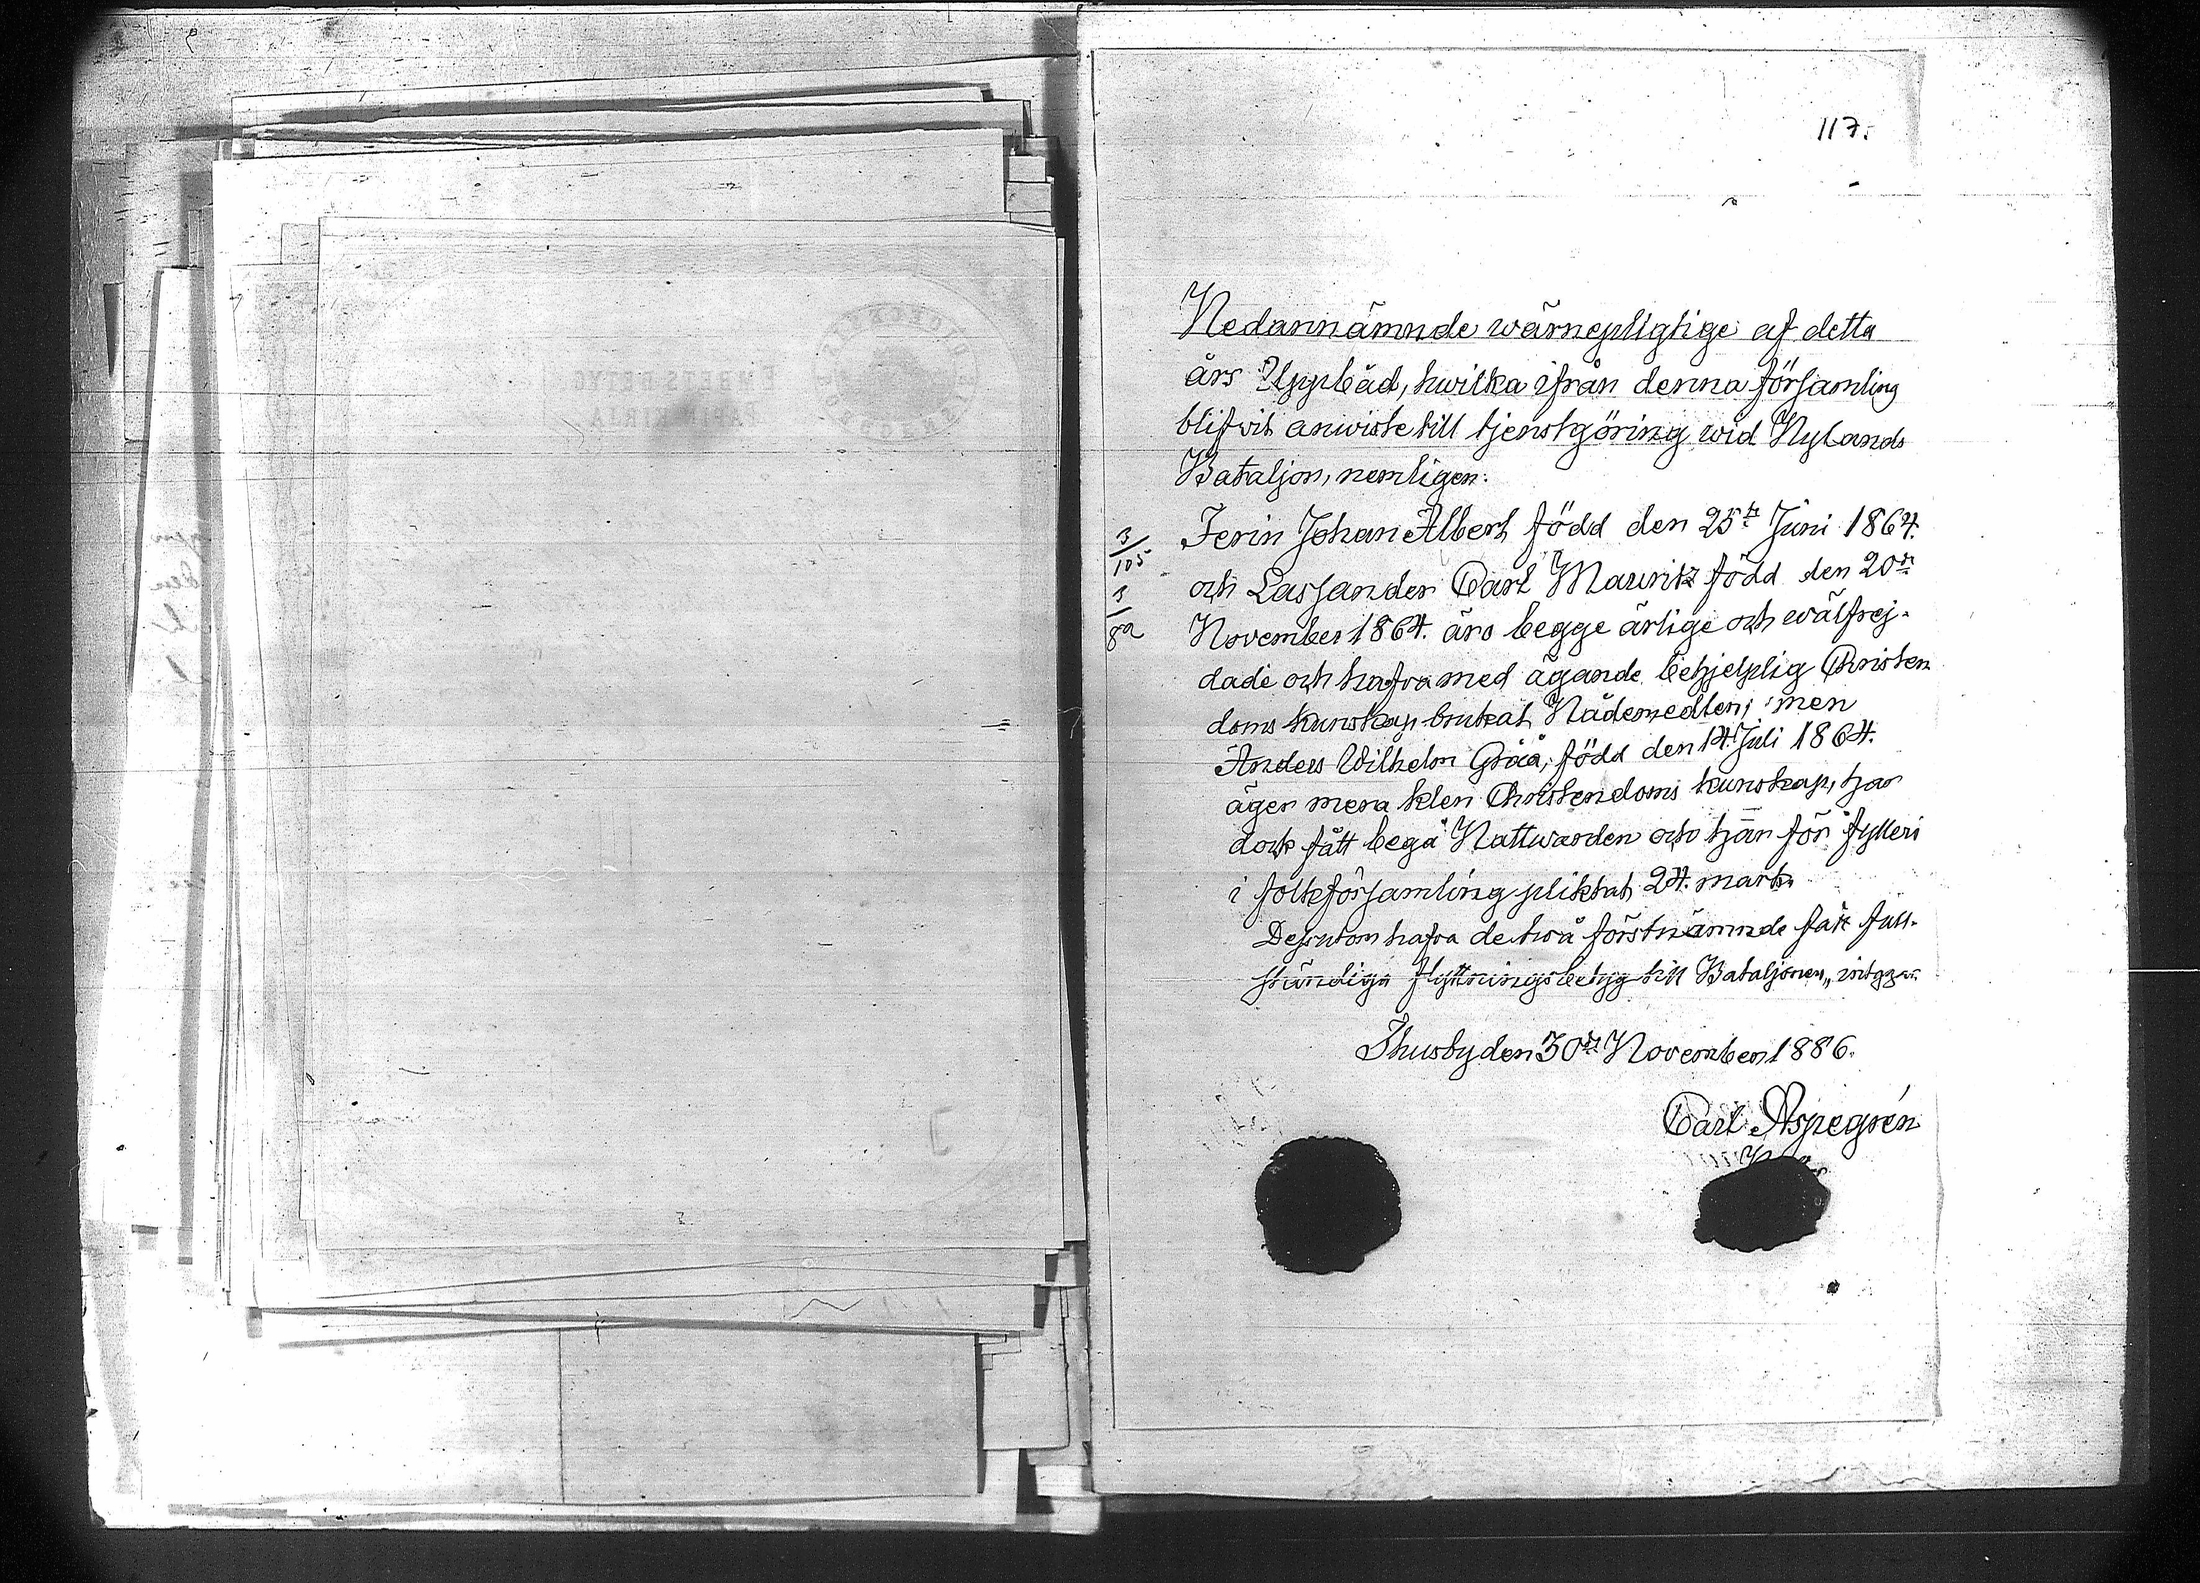 117.
Nedannämnde wärnepligtige af detta
års Uppbåd, hwilka ifrån denna församling
blifvit anwiste till tjenstgöring wid Nylands
Bataljon, nemligen:
3/105 Ferin Johan Albert född den 25te Juni 1864.
och Lassander Carl Mauritz född den 20de
November 1864. äro begge ärlige och wälfrej-
dade och hafva med ägande behjelplig Christen
doms kunskap brukat Nådemedlen; men
Anders Wilhelm Gråå, född den 14. Juli 1864.
äger mera klen Christendoms kunskap, har
dock fått begå Nattwarden och har för fylleri
i folkförsamling pliktat 24. mark.
Dessutom hafva de två förstnämnde fått full-
ständiga flyttningsbetyg till Bataljonen,
Thusby den 30de November 1886.
Carl Aspegrén
EMBETSBETYG
VIRKA